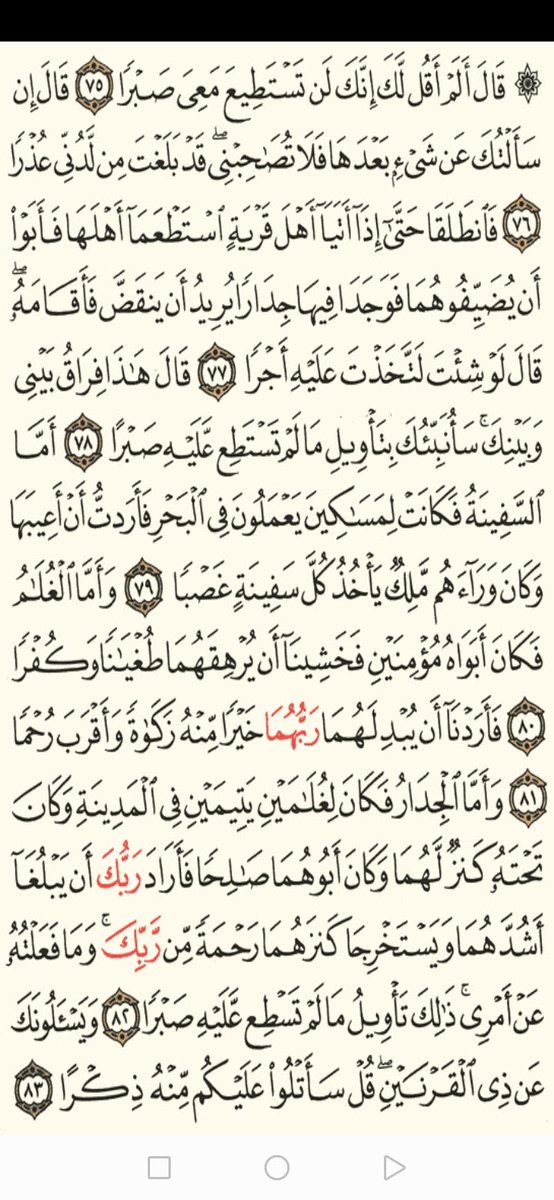 ۞ قَالَ أَلَمْ أَقُل لَّكَ إِنَّكَ لَن تَسْتَطِيعَ مَعِىَ صَبْرًا ٧٥ قَالَ إِن
سَأَلْتُكَ عَن شَىْءٍۭ بَعْدَهَا فَلَا تُصَٰحِبْنِى ۖ قَدْ بَلَغْتَ مِن لَّدُنِّى عُذْرًا
٧٦ فَٱنطَلَقَا حَتَّىٰٓ إِذَآ أَتَيَآ أَهْلَ قَرْيَةٍ ٱسْتَطْعَمَآ أَهْلَهَا فَأَبَوْا۟
أَن يُضَيِّفُوهُمَا فَوَجَدَا فِيهَا جِدَارًا يُرِيدُ أَن يَنقَضَّ فَأَقَامَهُۥ ۖ
قَالَ لَوْ شِئْتَ لَتَّخَذْتَ عَلَيْهِ أَجْرًا ٧٧ قَالَ هَٰذَا فِرَاقُ بَيْنِى
وَبَيْنِكَ ۚ سَأُنَبِّئُكَ بِتَأْوِيلِ مَا لَمْ تَسْتَطِع عَّلَيْهِ صَبْرًا ٧٨ أَمَّا
ٱلسَّفِينَةُ فَكَانَتْ لِمَسَٰكِينَ يَعْمَلُونَ فِى ٱلْبَحْرِ فَأَرَدتُّ أَنْ أَعِيبَهَا
وَكَانَ وَرَآءَهُم مَّلِكٌ يَأْخُذُ كُلَّ سَفِينَةٍ غَصْبًا ٧٩ وَأَمَّا ٱلْغُلَٰمُ
فَكَانَ أَبَوَاهُ مُؤْمِنَيْنِ فَخَشِينَآ أَن يُرْهِقَهُمَا طُغْيَٰنًا وَكُفْرًا
٨٠ فَأَرَدْنَآ أَن يُبْدِلَهُمَا رَبُّهُمَا خَيْرًا مِّنْهُ زَكَوٰةً وَأَقْرَبَ رُحْمًا
٨١ وَأَمَّا ٱلْجِدَارُ فَكَانَ لِغُلَٰمَيْنِ يَتِيمَيْنِ فِى ٱلْمَدِينَةِ وَكَانَ
تَحْتَهُۥ كَنزٌ لَّهُمَا وَكَانَ أَبُوهُمَا صَٰلِحًا فَأَرَادَ رَبُّكَ أَن يَبْلُغَآ
أَشُدَّهُمَا وَيَسْتَخْرِجَا كَنزَهُمَا رَحْمَةً مِّن رَّبِّكَ ۚ وَمَا فَعَلْتُهُۥ
عَنْ أَمْرِى ۚ ذَٰلِكَ تَأْوِيلُ مَا لَمْ تَسْطِع عَّلَيْهِ صَبْرًا ٨٢ وَيَسْـَٔلُونَكَ
عَن ذِى ٱلْقَرْنَيْنِ ۖ قُلْ سَأَتْلُوا۟ عَلَيْكُم مِّنْهُ ذِكْرًا ٨٣